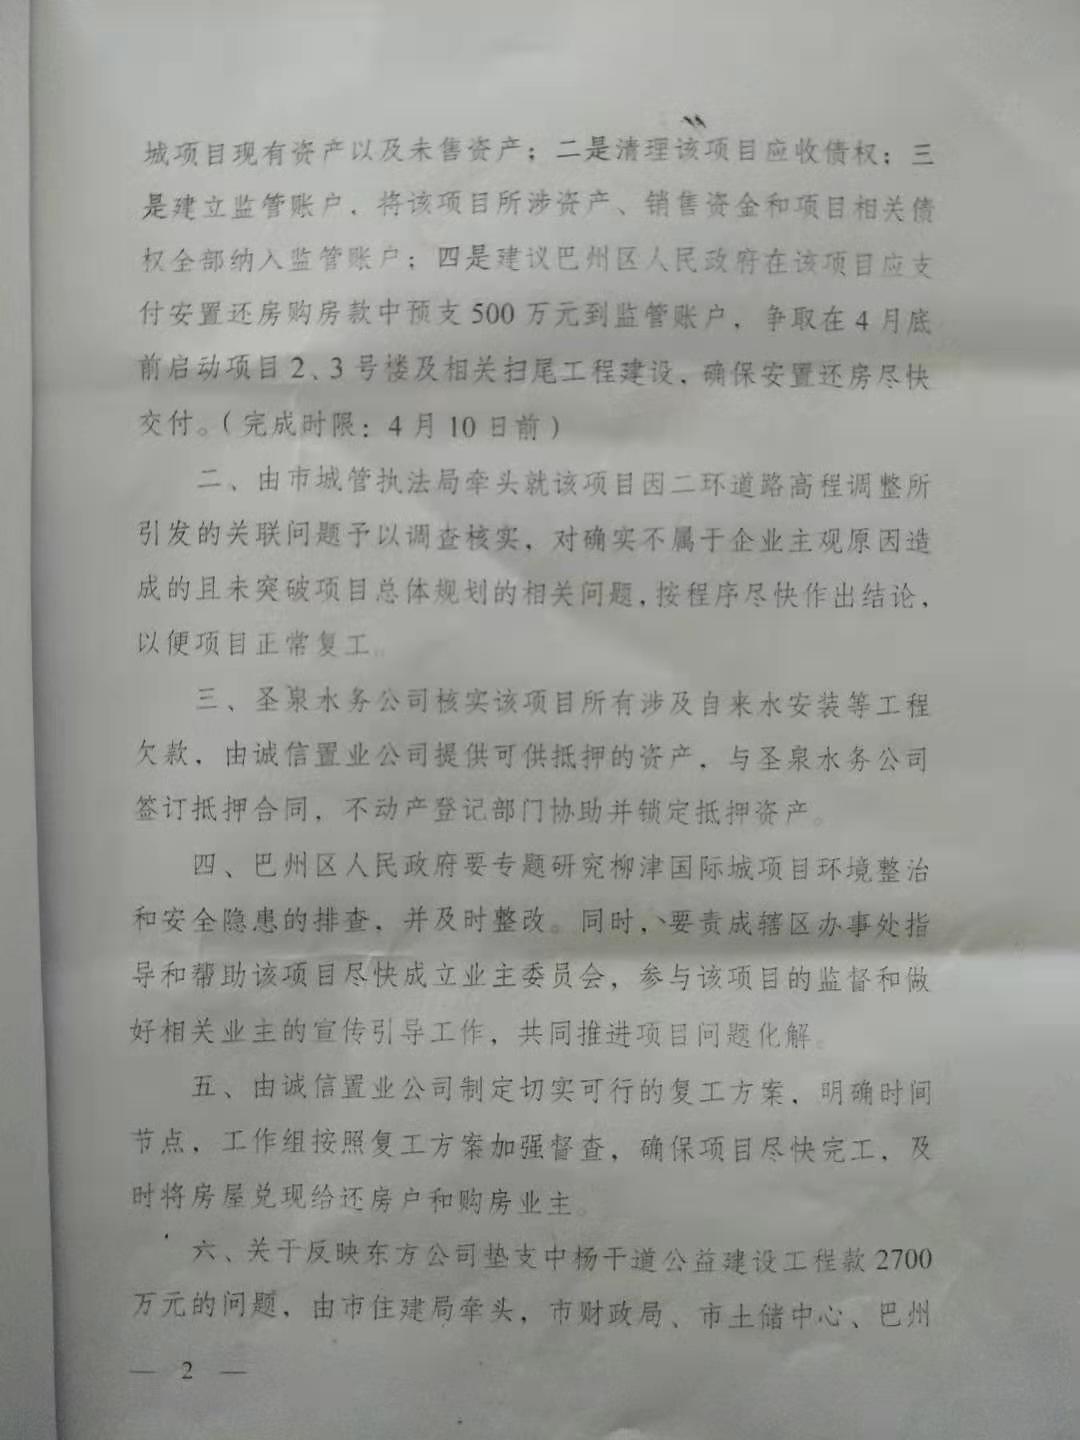 城项目现有资产以及未售资产；二是清理该项目应收债权；三
是建立监管账户，将该项目所涉资产、销售资金和项目相关债
权全部纳入监管账户；四是建议巴州区人民政府在该项目应支
付安置还房购房款中预支500万元到监管账户，争取在4月底
前启动项目2、3号楼及相关扫尾工程建设，确保安置还房尽快
交付。（完成时限：4月10日前）
二、由市城管执法局牵头就该项目因二环道路高程调整所
引发的关联问题予以调查核实，对确实不属于企业主观原因造
成的且未突破项目总体规划的相关问题，按程序尽快作出结论，
以便项目正常复工。
三、圣泉水务公司核实该项目所有涉及自来水安装等工程
欠款，由诚信置业公司提供可供抵押的资产，与圣泉水务公司
签订抵押合同，不动产登记部门协助并锁定抵押资产。
四、巴州区人民政府要专题研究柳津国际城项目环境整治
和安全隐患的排查，并及时整改。同时，要责成辖区办事处指
导和帮助该项目尽快成立业主委员会，参与该项目的监督和做
好相关业主的宣传引导工作，共同推进项目问题化解。
五、由诚信置业公司制定切实可行的复工方案，明确时间
节点，工作组按照复工方案加强督查，确保项目尽快完工，及
时将房屋兑现给还房户和购房业主。
六、关于反映东方公司垫支中杨干道公益建设工程款2700
万元的问题，由市住建局牵头，市财政局、市土储中心、巴州
— 2 —